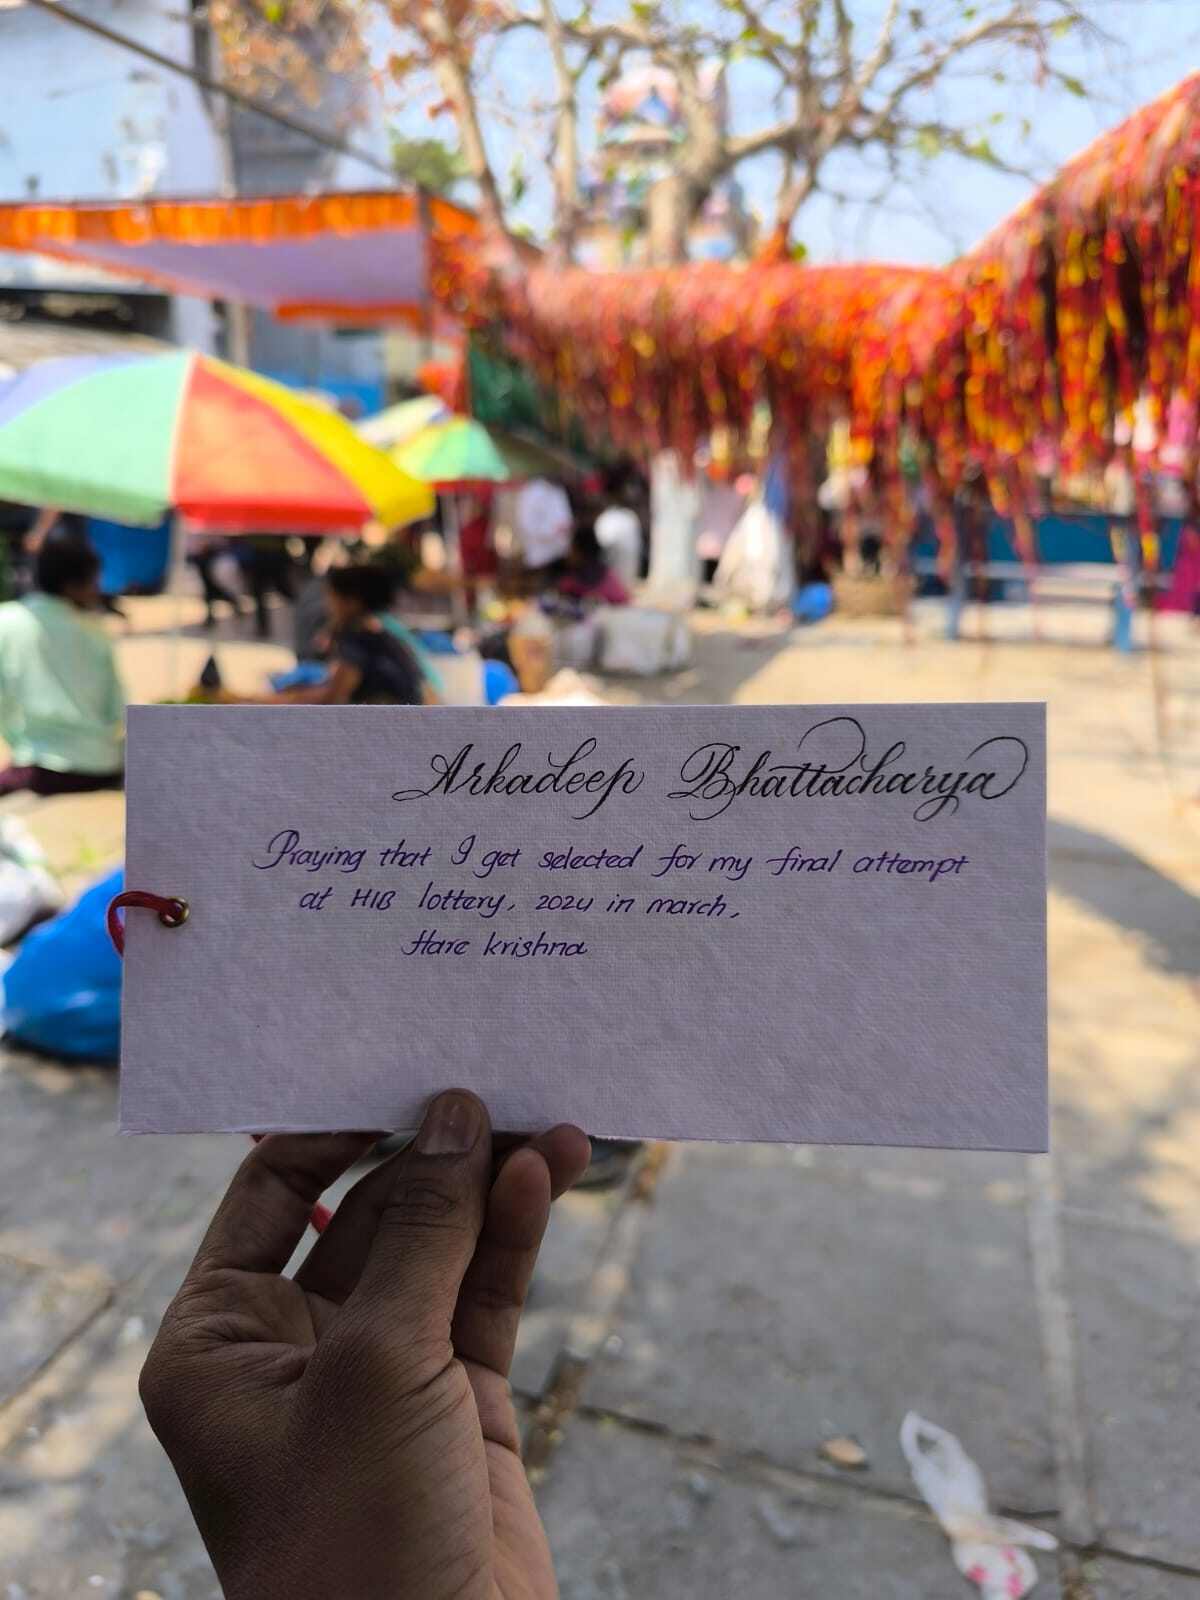 Arkadeep Bhattacharya
Praying that I get selected for my final attempt
at H1B lottery, 2024 in march,
Hare krishna